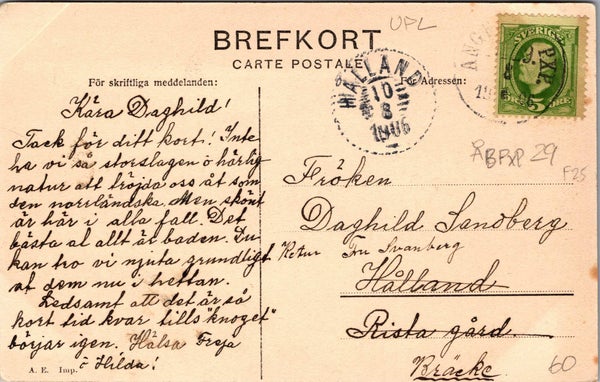 UPL
BREFKORT
CARTE POSTALE
SVERIGE
5 ÖRE
HÅLLAND
10
8
1906
PXP.
För skriftliga meddelanden:
För Adressen:
Kära Daghild!
Tack för ditt kort! Inte
ha vi så storslagen o härlig
natur att fröjda oss åt som
den norrländska. Men skönt
är här i alla fall. Det
bästa af allt är baden. Du
kan tro vi njuta grundligt
af dem nu i hettan.
Ledsamt att det är så
kort tid kvar tills "knoget"
börjar igen. Hälsa Freja
o Hilda!
ÅBFXP 29
F25
Fröken
Daghild Sandberg
Retur Fru Svanberg
Hålland
Rista gård
Bräcke
60
A. E. Imp.